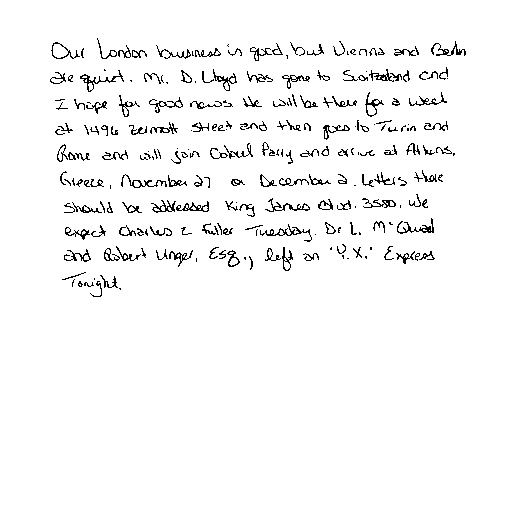 Our London business is good, but Vienna and Berlin
are quiet. Mr. D. Lloyd has gone to Switzerland and
I hope for good news. He will be there for a week
at 1496 Zermott Street and then goes to Turin and
Rome and will join Colonel Parry and arrive at Athens,
Greece, November 27 or December 2. Letters there
should be addressed King James Blvd. 3580. We
expect Charles E Fuller Tuesday. Dr L. McQuaid
and Robert Unger, Esq., left on "Y.X." Express
Tonight.